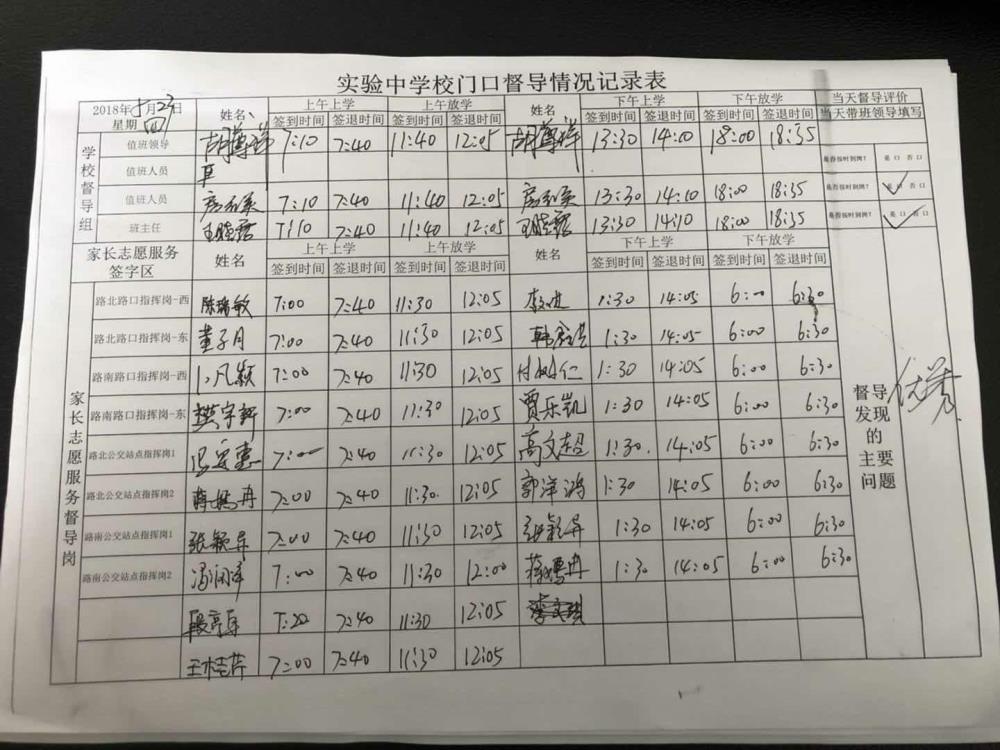 实验中学校门口督导情况记录表
2018年 月 日 姓名 上午上学 上午放学 姓名 下午上学 下午放学 当天督导评价
星期 四 签到时间 签退时间 签到时间 签退时间 签到时间 签退时间 签到时间 签退时间 当天带班领导填写
学校督导组
值班领导 7:10 7:40 11:40 12:05 13:30 14:00 18:00 18:35
值班人员 是否按时到岗? 是口 否口
值班人员 7:10 7:40 11:40 12:05 13:30 14:10 18:00 18:35 是否按时到岗? 是口 否口
班主任 王晓露 7:10 7:40 11:40 12:05 王晓露 13:30 14:10 18:00 18:35 是否按时到岗? 是口 否口
家长志愿服务签字区 姓名 上午上学 上午放学 姓名 下午上学 下午放学
签到时间 签退时间 签到时间 签退时间 签到时间 签退时间 签到时间 签退时间
家长志愿服务督导岗
路北路口指挥岗-西 陈瑞敏 7:00 7:40 11:30 12:05 1:30 14:05 6:00 6:30
路北路口指挥岗-东 董子月 7:00 7:40 11:30 12:05 1:30 14:05 6:00 6:30
路南路口指挥岗-西 7:00 7:40 11:30 12:05 付树仁 1:30 14:05 6:00 6:30
路南路口指挥岗-东 樊宇轩 7:00 7:40 11:30 12:05 贾乐凯 1:30 14:05 6:00 6:30
路北公交站点指挥岗1 7:00 7:40 11:30 12:05 高文超 1:30 14:05 6:00 6:30
路北公交站点指挥岗2 7:00 7:40 11:30 12:05 郭洋鸿 1:30 14:05 6:00 6:30
路南公交站点指挥岗1 张颖异 7:00 7:40 11:30 12:05 张颖异 1:30 14:05 6:00 6:30
路南公交站点指挥岗2 冯润泽 7:00 7:40 11:30 12:00 1:30 14:05 6:00 6:30
7:20 7:40 11:30 12:05
王桂芹 7:00 7:40 11:30 12:05
督导发现的主要问题
优秀